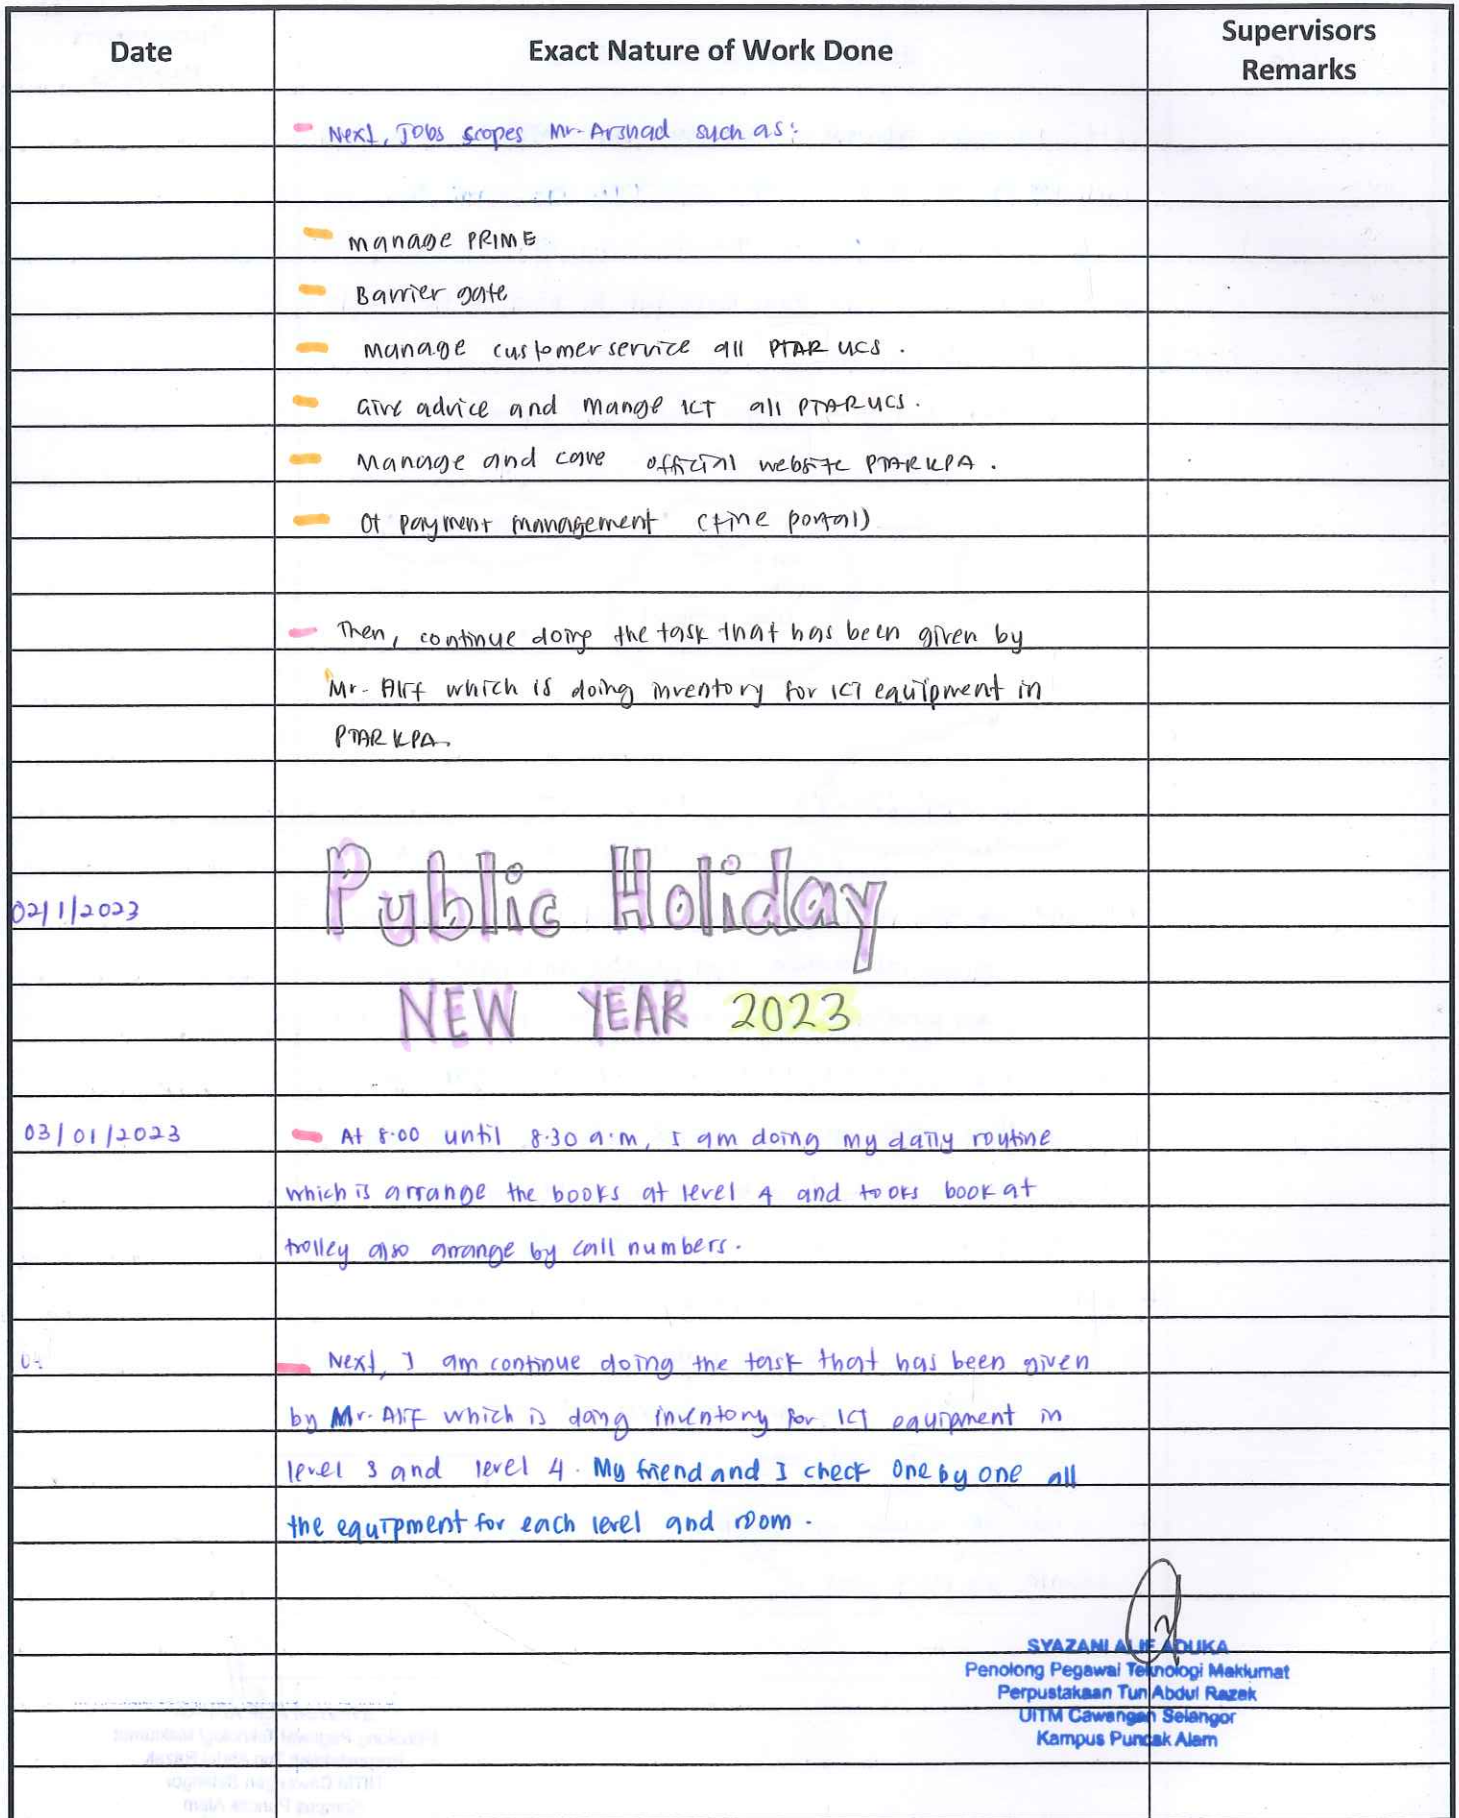 Date
Exact Nature of Work Done
Supervisors
Remarks
Next, Jobs scopes Mr. Arshad such as:
Manage PRIME
Barrier gate
Manage customer service all PTAR UCS.
Give advice and mange ICT all PTAR UCS.
Manage and care official website PTAR KPA.
Ot payment management (time portal)
Then, continue doing the task that has been given by
Mr. Alif which is doing inventory for ICT equipment in
PTAR KPA.
02/1/2023
Public Holiday
NEW YEAR 2023
03/01/2023
At 8.00 until 8.30 a.m, I am doing my daily routine
which is arrange the books at level 4 and tooks book at
trolley also arrange by call numbers.
Next, I am continue doing the task that has been given
by Mr. Alif which is doing inventory for ICT equipment in
level 3 and level 4. My friend and I check one by one all
the equipment for each level and room.
SYAZANI ALIF ADUKA
Penolong Pegawai Teknologi Maklumat
Perpustakaan Tun Abdul Razak
UITM Cawangan Selangor
Kampus Puncak Alam